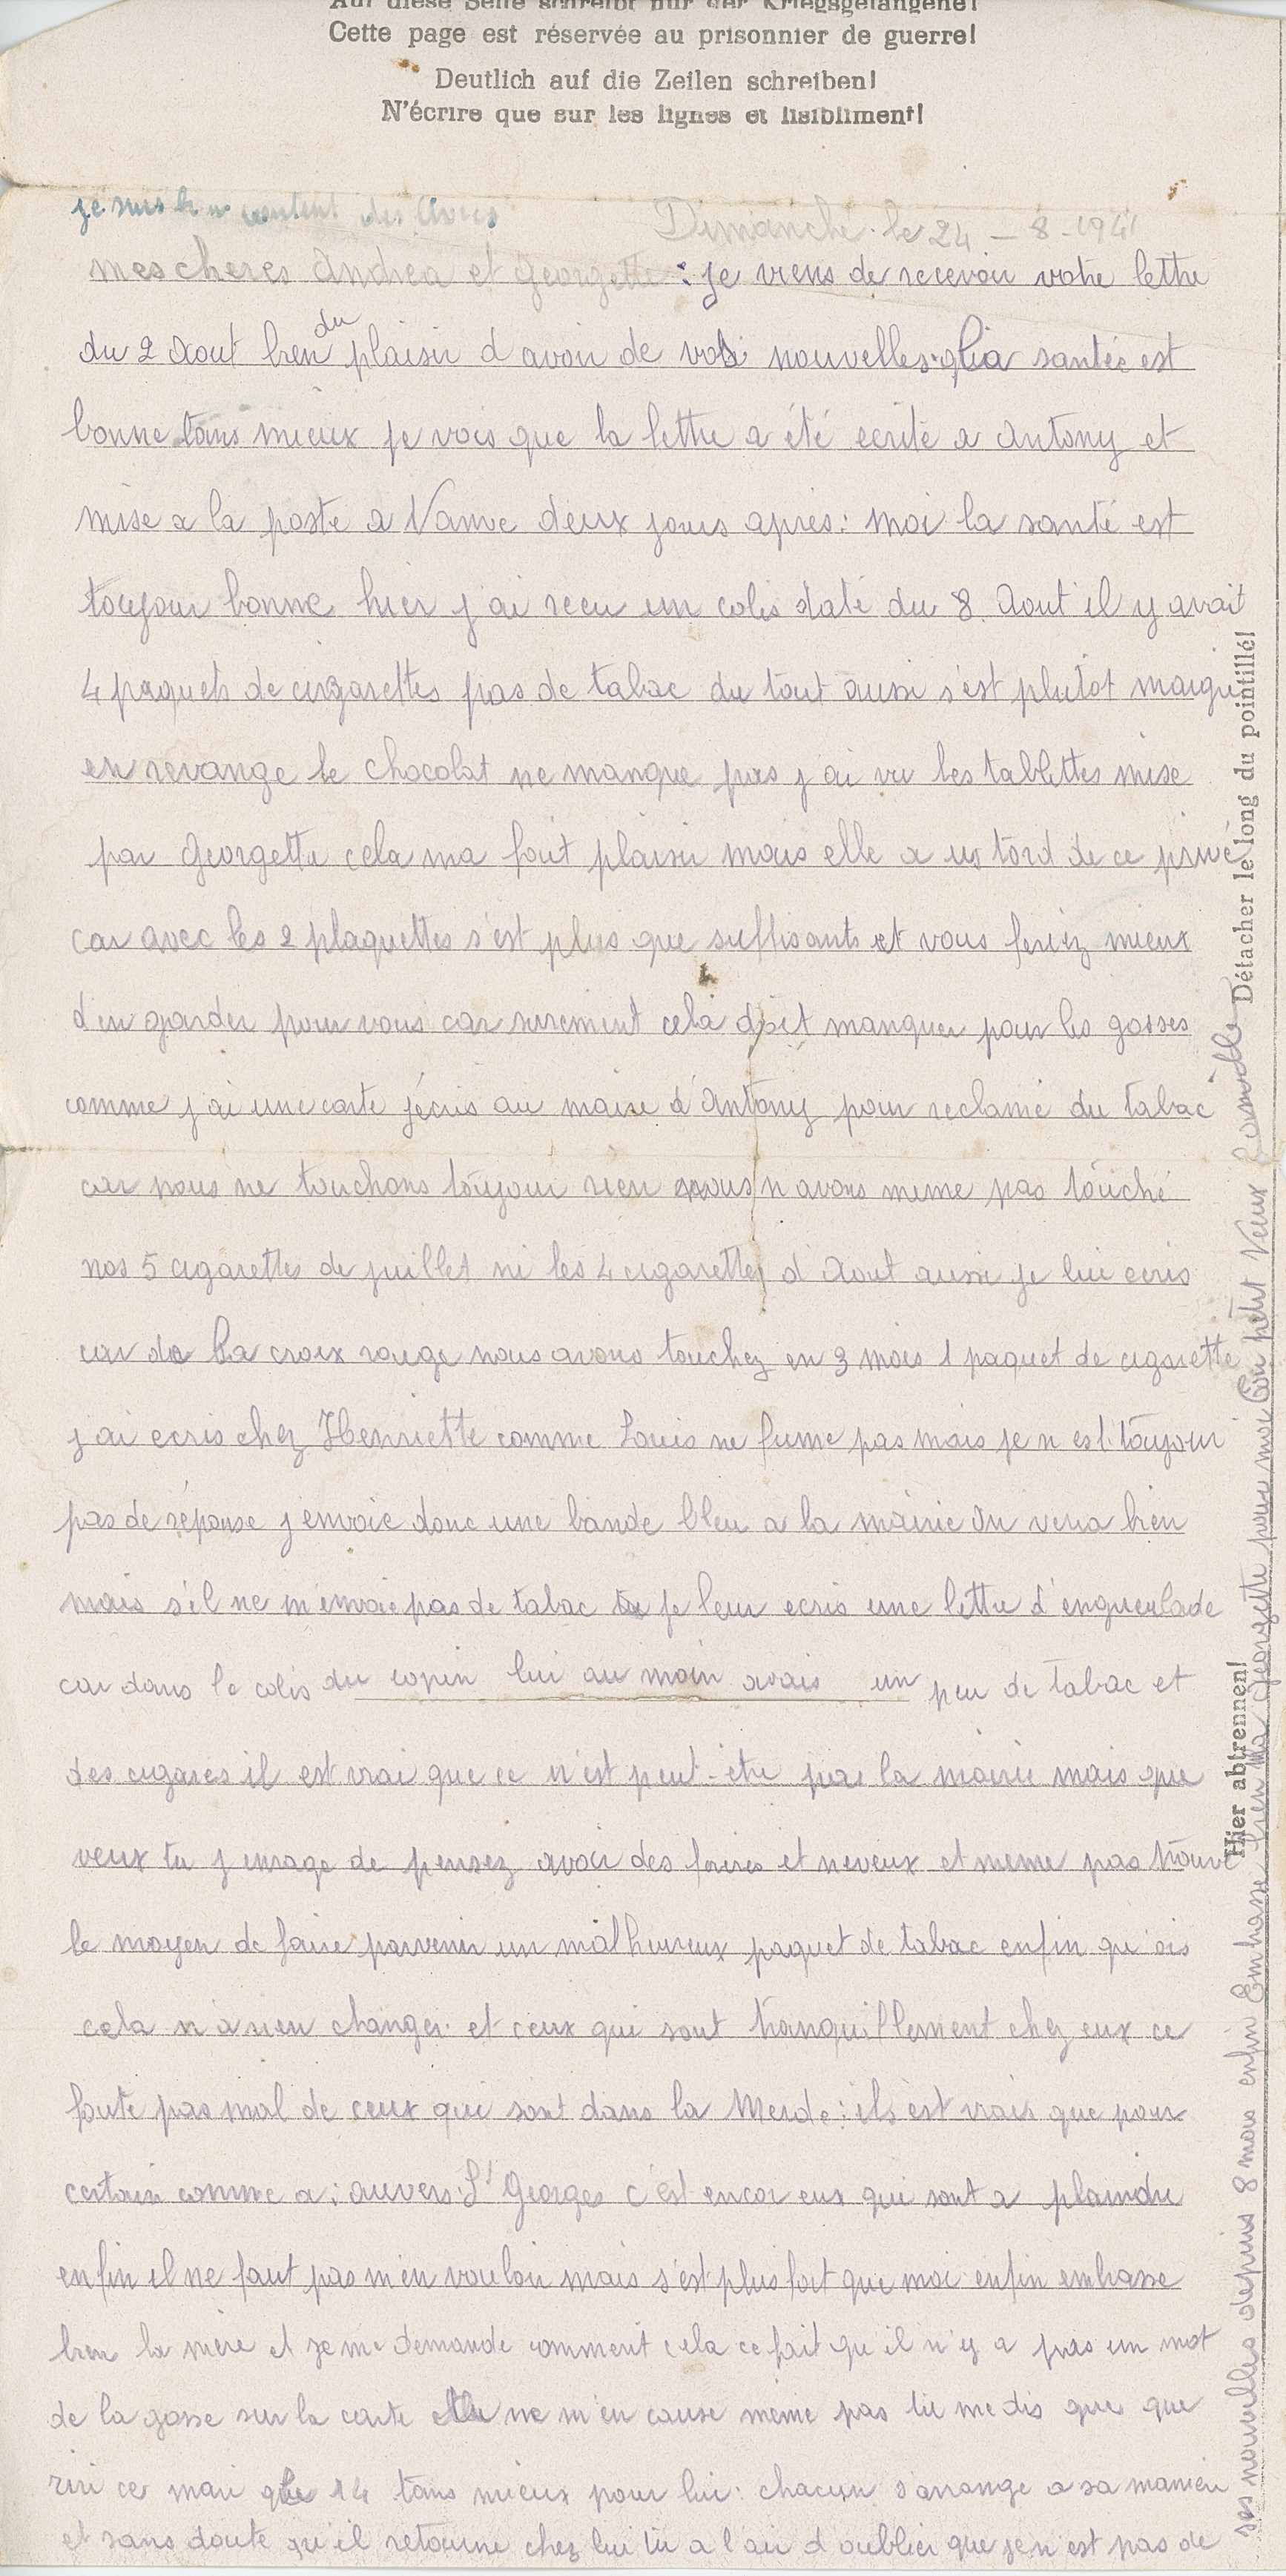 Auf diese Seite schreibt nur der Kriegsgefangene!
Cette page est réservée au prisonnier de guerre!
Deutlich auf die Zeilen schreiben!
N'écrire que sur les lignes et lisiblement!
je suis bien content des livres
Dimanche le 24 - 8 - 1941
mes cheres Andrea et Georgette : je viens de recevoir votre lettre
du 2 Aout bien du plaisir d avoir de vos nouvelles. la santée est
bonne tans mieux je vois que la lettre a été ecrite a Antony et
mise a la poste a Vanve deux jours apres : moi la santé est
toujour bonne hier j ai recu un colis daté du 8 Aout il y avait
4 paquets de cigarettes pas de tabac du tout aussi s'est plutot maigre
en revange le chocolat ne manque pas j ai vu les tablettes mise
par Georgette cela ma fait plaisir mais elle a us tord de ce privé
car avec les 2 plaquettes s'est plus que suffisants et vous feriez mieux
d en garder pour vous car surement cela doit manquer pour les gosses
comme j ai une carte j écris au maire d'Antony pour reclamé du tabac
car nous ne touchons toujour rien nous n avons meme pas touché
nos 5 cigarettes de juillet ni les 4 cigarettes d Aout aussi je lui ecris
car de la croix rouge nous avons touchez en 3 mois 1 paquet de cigarette
j ai ecris chez Henriette comme Louis ne fume pas mais je n est toujour
pas de réponse j envoie donc une bande bleu a la mairie on vera bien
mais s'il ne m'envoie pas de tabac je leur ecris une lettre d'enguerlade
car dans le colis du copin lui au moin avais un peu de tabac et
des cigares il est vrai que ce n'est peut-etre pas la mairie mais que
veux tu j enrage de pensez avoir des freres et neveux et meme pas trouvé
le moyen de faire parvenir un malheureux paquet de tabac enfin
cela n'a rien changer et ceux qui sont tranquillement chez eux ce
foute pas mal de ceux qui sont dans la Merde : il est vrais que pour
certain comme a : auvers St Georges c'est encor eux qui sont a plaindre
enfin il ne faut pas m'en vouloir mais s'est plus fort que moi enfin embrasse
bien la mère et je me demande comment cela ce fait qu'il n'y a pas un mot
de la gosse sur la carte tu ne m'en cause même pas tu me dis que que
riri ce mari le 14 tans mieux pour lui : chacun s'arrange a sa maniere
et sans doute qu'il retourne chez lui tu a l'air d oublier que je n est pas de
ses nouvelles depuis 8 mois enfin Embrasse bien ma Georgette pour moi Ton petit Vieux
Détacher le long du pointillé!
Hier abtrennen!